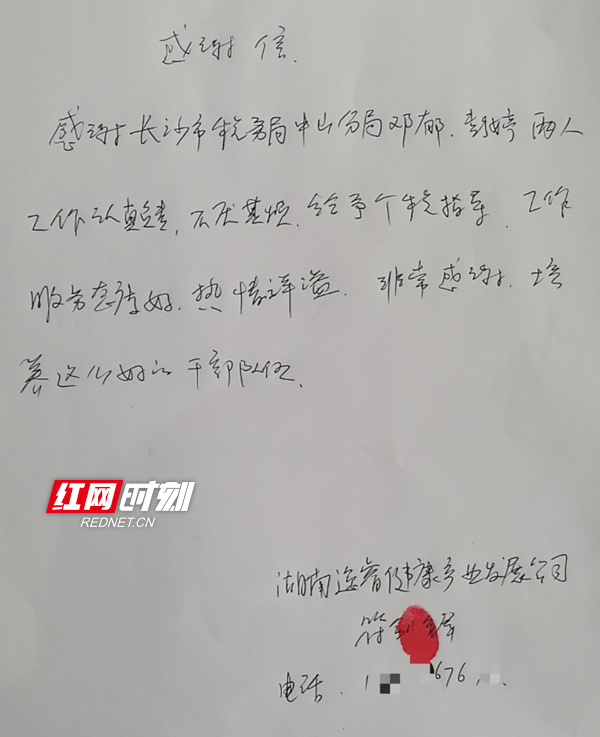 感谢信.
感谢长沙市税务局中山分局邓郁、彭婷两人
工作认真负责,不厌其烦、给予个税指导、工作
服务态度好、热情洋溢. 非常感谢、培
养这么好的干部队伍.
红网时刻
REDNET.CN
湖南逸睿健康产业发展公司
符
电话. 1 676